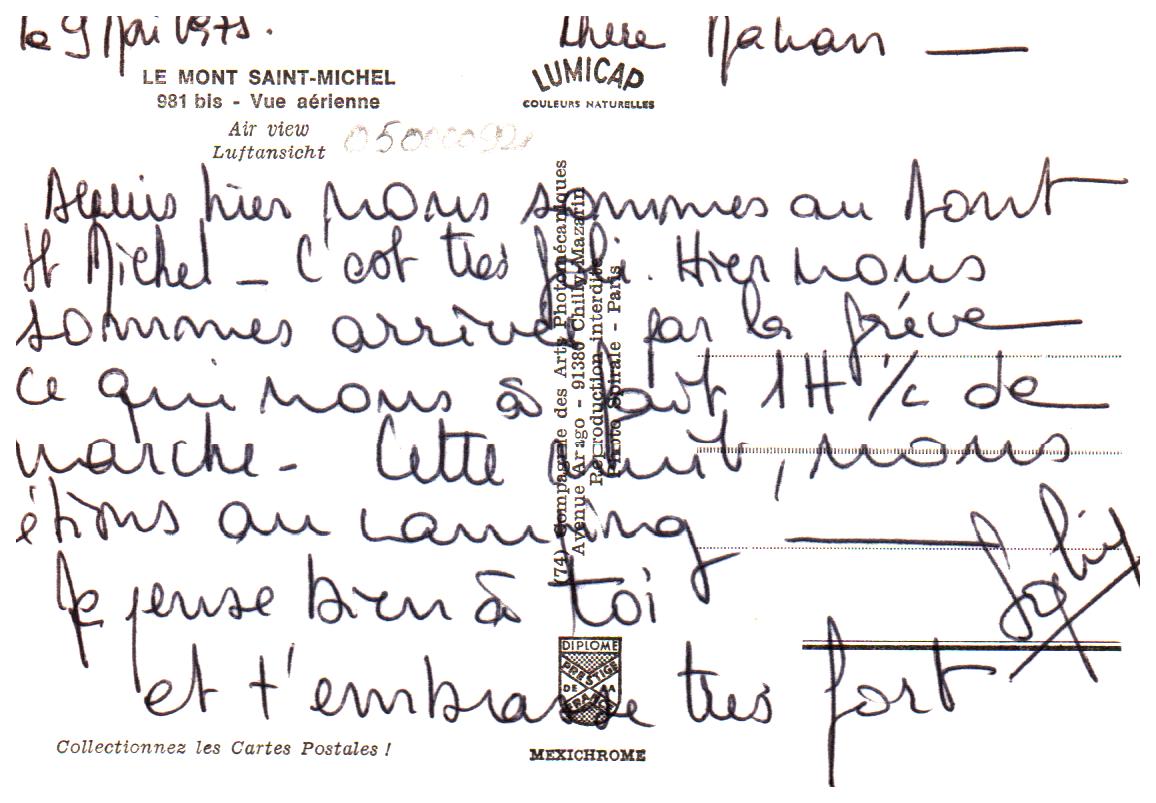 le 9 Mai 1975.
Chère Maman —
LE MONT SAINT-MICHEL
981 bis - Vue aérienne
Air view
Luftansicht
LUMICAP
COULEURS NATURELLES
05000092
depuis hier nous sommes au Mont
St Michel - C'est tres joli. Hier nous
sommes arrivés par la grève
ce qui nous à fait 1H 1/2 de
marche - Cette nuit, nous
étions au camping —
Je pense bien à toi
et t'embrasse tres fort
Sophie
(74) Compagnie des Arts Photomécaniques
Avenue Arago - 91380 Chilly-Mazarin
Reproduction interdite
Photo Spirale - Paris
DIPLOME
PRESTIGE
DE LA
FRANCE
Collectionnez les Cartes Postales !
MEXICHROME